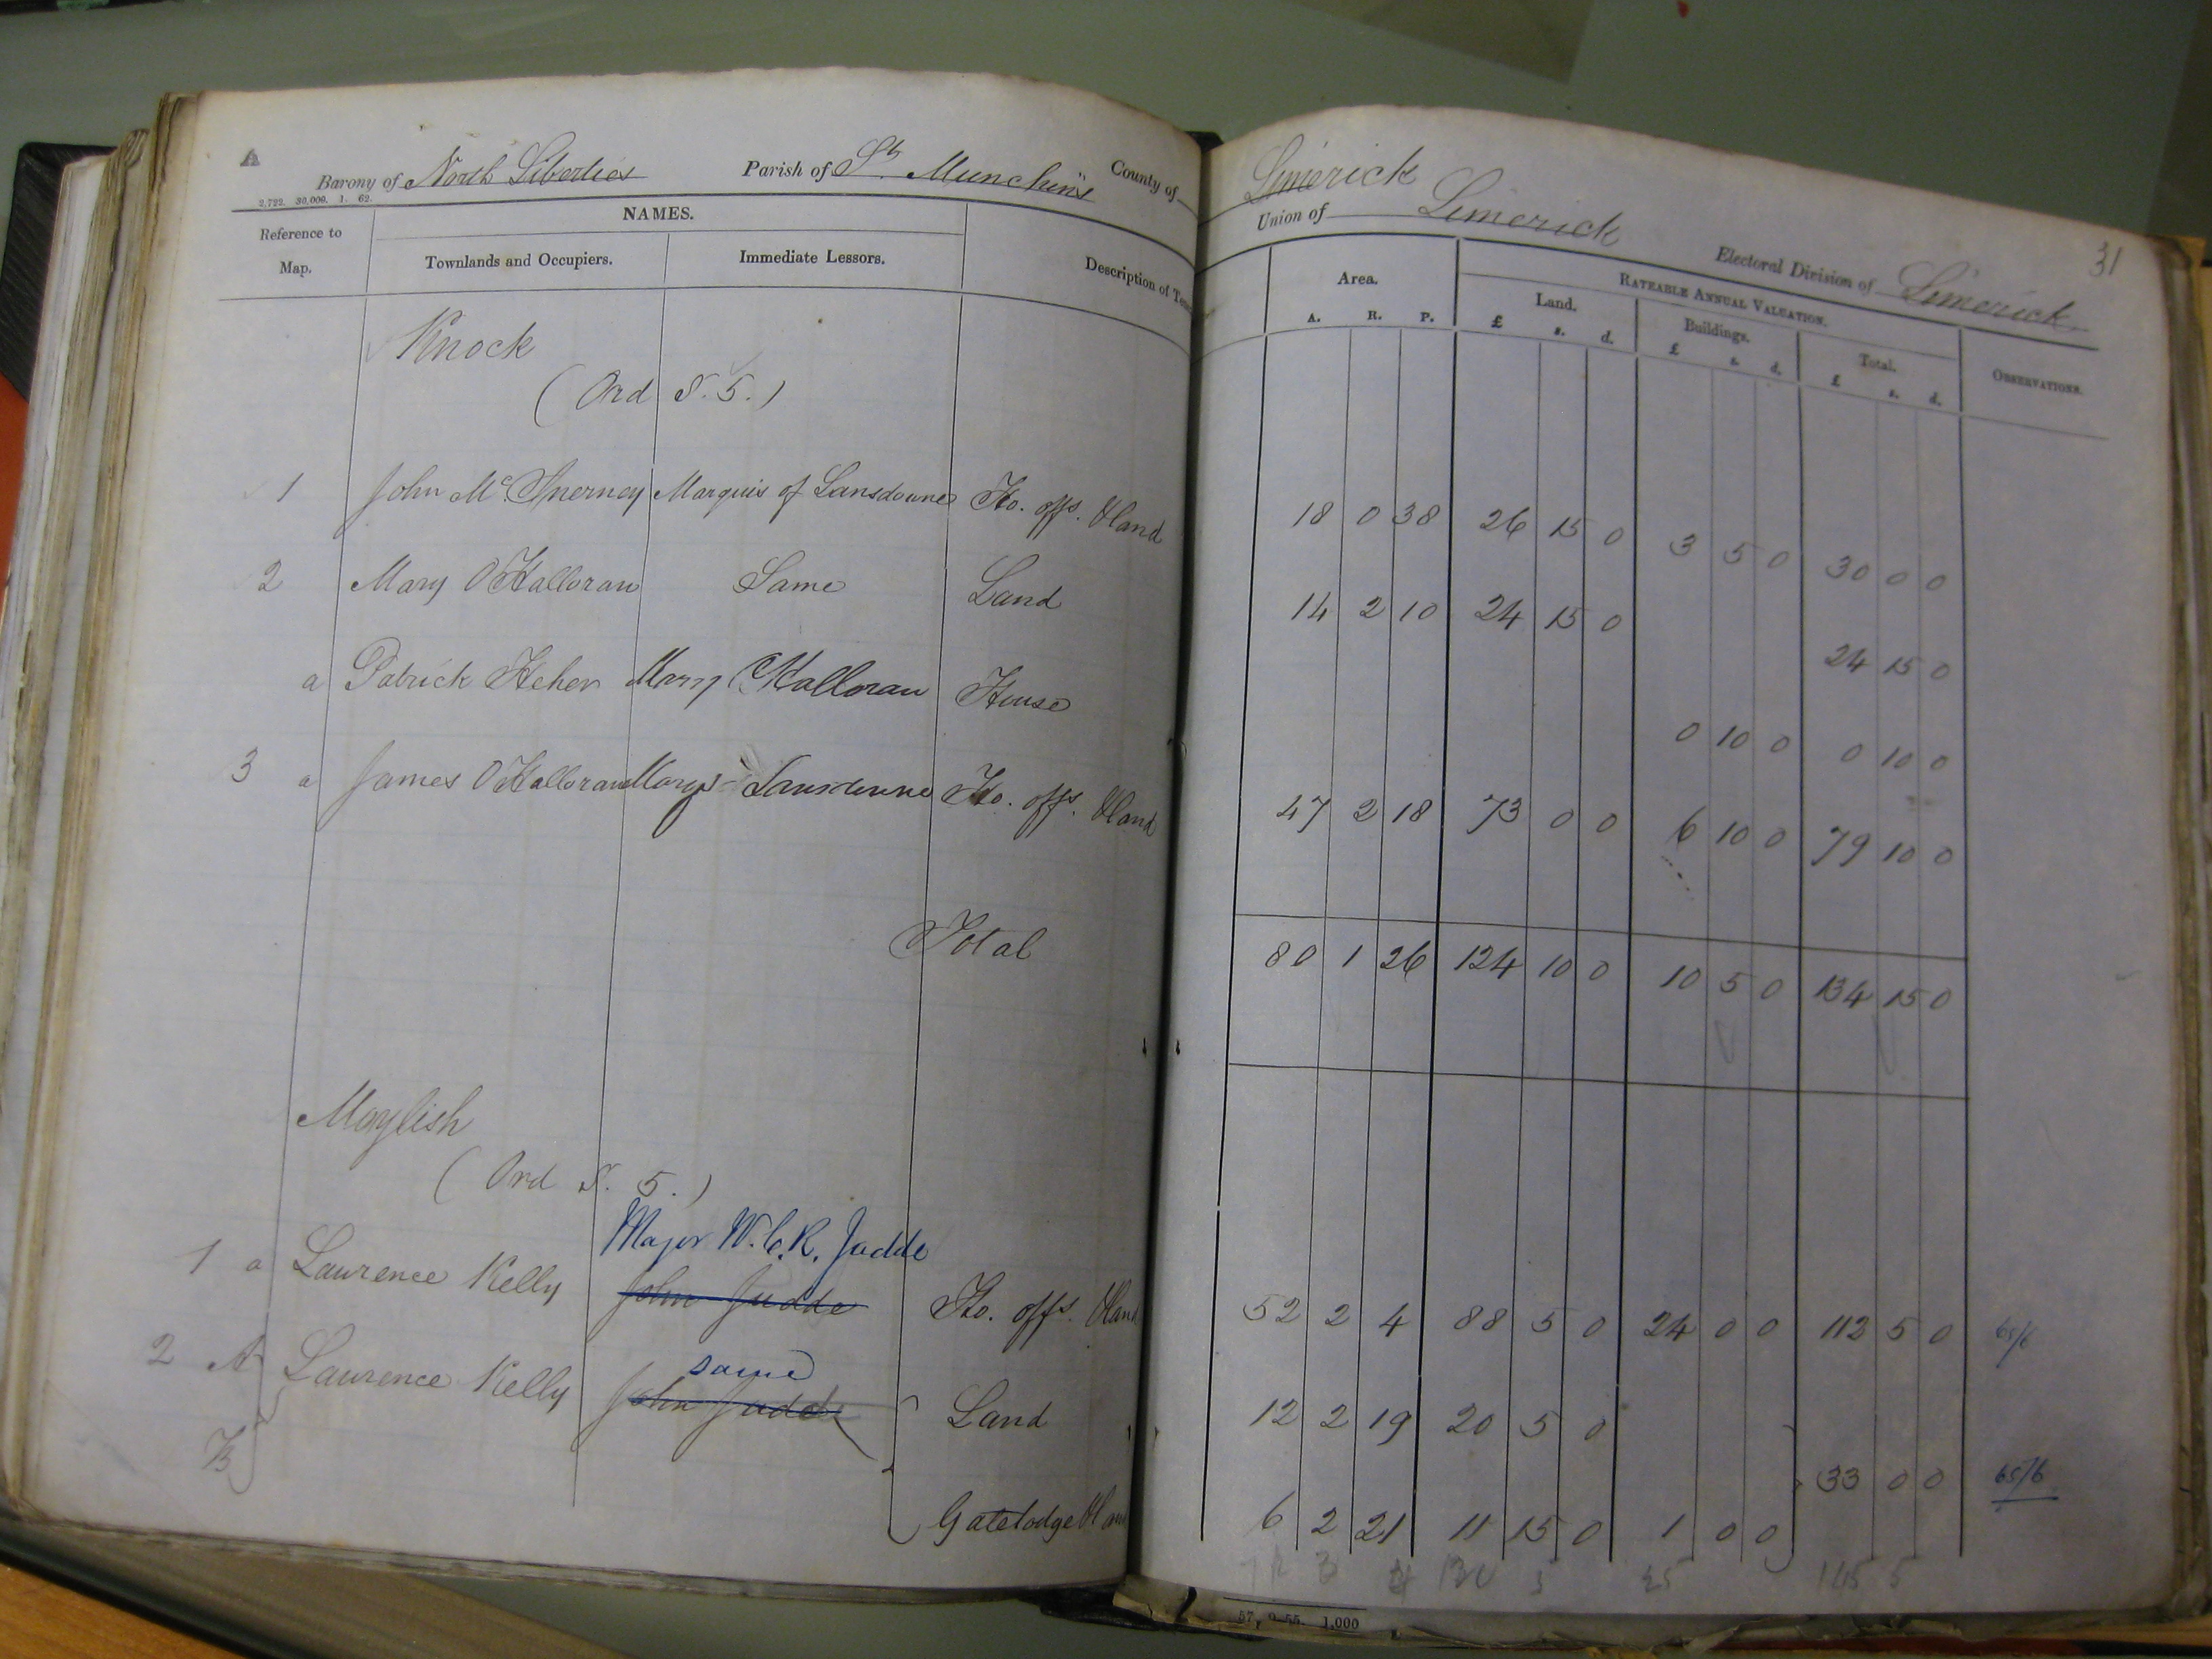 A
Barony of North Liberties Parish of St. Munchin's County of Limerick
Union of Limerick Electoral Division of Limerick 31
2,722. 30,000. 1. 62.
Reference to Map. NAMES. Description of Area. RATEABLE ANNUAL VALUATION. OBSERVATIONS.
Townlands and Occupiers. Immediate Lessors. Land. Buildings. Total.
A. R. P. £ s. d. £ s. d. £ s. d.
Knock
(Ord S. 5.)
1 John McInerney Marquis of Lansdowne Ho. offs. &land 18 0 38 26 15 0 3 5 0 30 0 0
2 Mary O'Halloran Same Land 14 2 10 24 15 0 24 15 0
a Patrick Heher Mary O'Halloran House 0 10 0 0 10 0
3 a James O'Halloran Marqs Lansdowne Ho. offs. &land 47 2 18 73 0 0 6 10 0 79 10 0
Total 80 1 26 124 10 0 10 5 0 134 15 0
Moylish
(Ord S. 5.)
Major W.C.R. Judde
1 a Lawrence Kelly John Judde Ho. offs. &land 52 2 4 88 5 0 24 0 0 112 5 0
same
2 A Lawrence Kelly John Judde Land 12 2 19 20 5 0
33 0 0
B Gatelodge &land 6 2 21 11 15 0 1 0 0
25 145 5
57, 9-55. 1,000